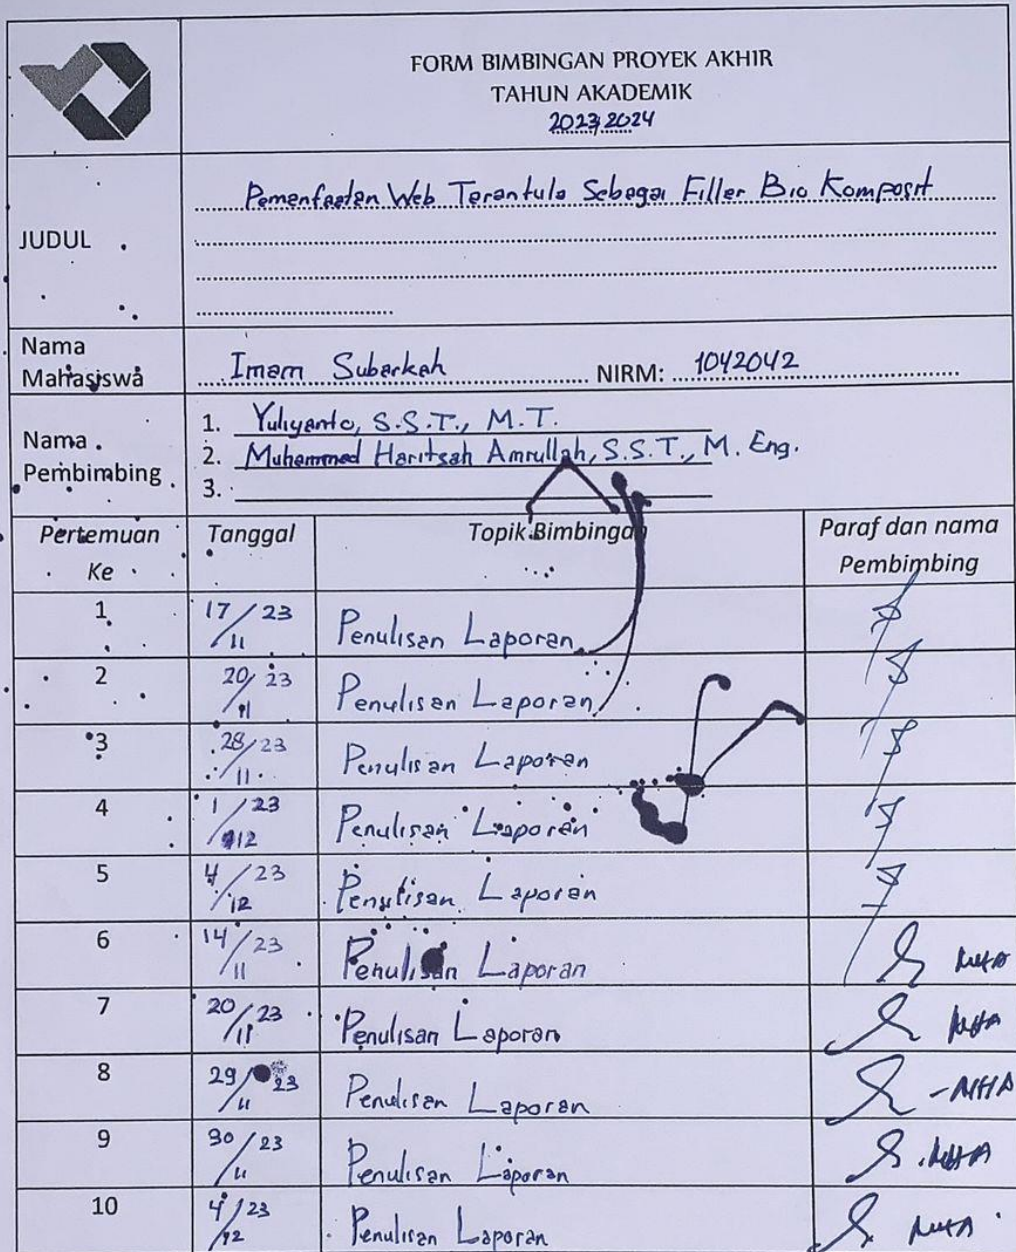 FORM BIMBINGAN PROYEK AKHIR
TAHUN AKADEMIK
2023/2024
JUDUL
Pemanfaatan Web Tarantula Sebagai Filler Bio Komposit
Nama Mahasiswa
Imam Subarkah NIRM: 1042042
Nama Pembimbing
1. Yuliyanto, S.S.T., M.T.
2. Muhammad Haritsah Amrullah, S.S.T., M. Eng.
3.
Pertemuan Ke Tanggal Topik Bimbingan Paraf dan nama Pembimbing
1 17/11 23 Penulisan Laporan
2 20/11 23 Penulisan Laporan
3 28/11 23 Penulisan Laporan
4 1/12 23 Penulisan Laporan
5 4/12 23 Penulisan Laporan
6 14/11 23 Penulisan Laporan MHA
7 20/11 23 Penulisan Laporan MHA
8 29/11 23 Penulisan Laporan - MHA
9 30/11 23 Penulisan Laporan MHA
10 4/12 23 Penulisan Laporan MHA